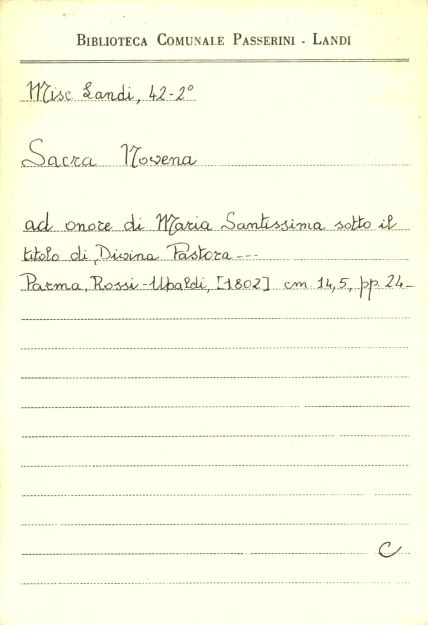 BIBLIOTECA COMUNALE PASSERINI - LANDI
Misc Landi, 42-2°
Sacra Novena
ad onore di Maria Santissima sotto il
titolo di Divina Pastora ---
Parma, Rossi-Ubaldi, [1802] cm 14,5, pp 24-
C